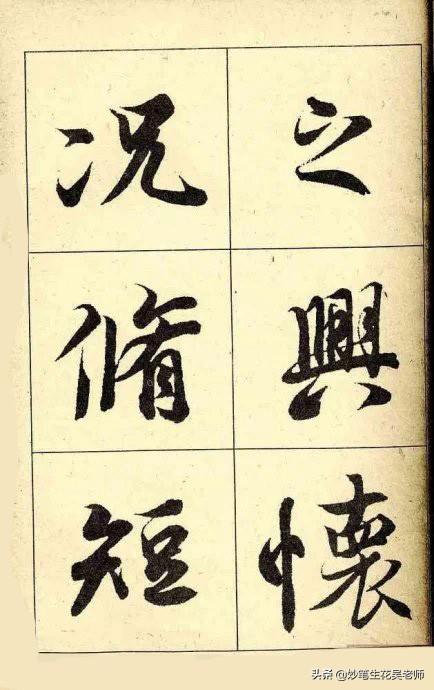 之興懷
况脩短
头条 @妙笔生花吴老师